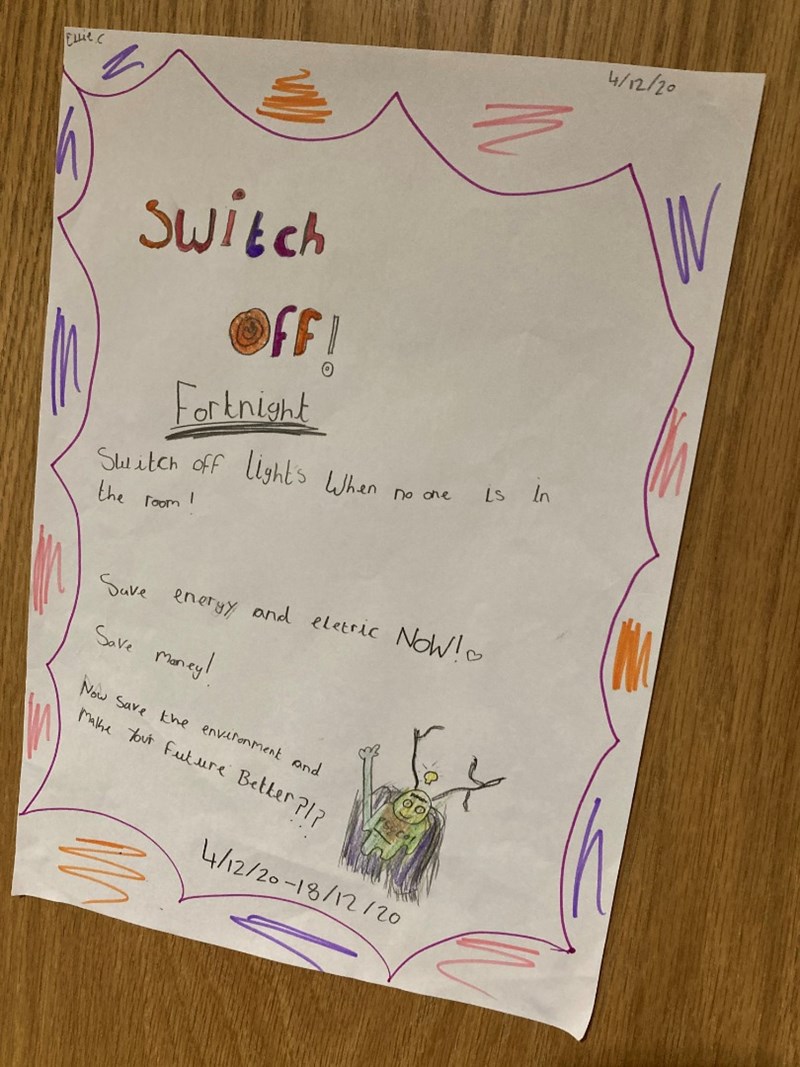 Ellie.C
4/12/20
Switch
Off!
Fortnight
Switch off lights when no one is in
the room!
Save energy and eletric NOW!♡
Save money!
Now save the environment and
make your future Better?!?
4/12/20-18/12/20